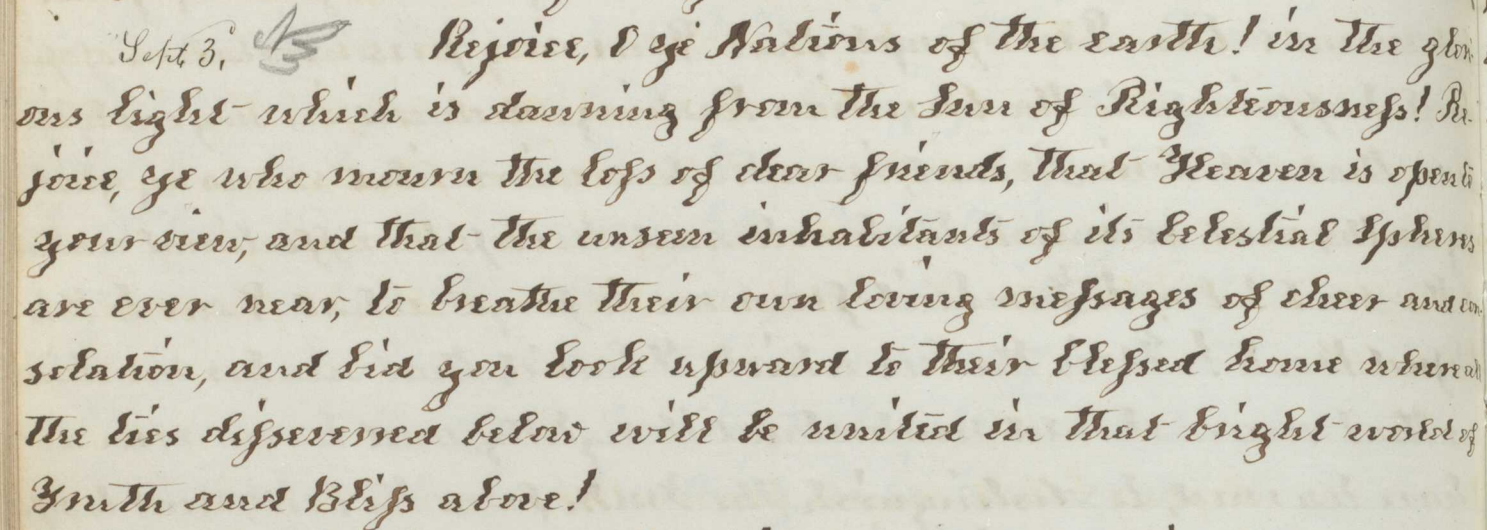 Sept. 3. Rejoice, O ye Nations of the earth! in the glori-
ous light which is dawning from the Sun of Righteousness! Re-
joice, ye who mourn the loss of dear friends, that Heaven is open to
your view, and that the unseen inhabitants of its Celestial Spheres
are ever near, to breathe their own loving messages of cheer and con-
solation, and bid you look upward to their blessed home where all
the ties disseverred below will be united in that bright world of
Truth and Bliss above!